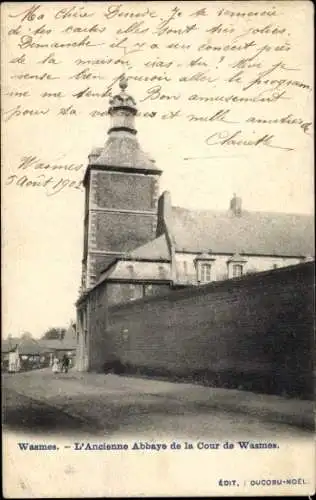 Ma Chère Denise Je te remercie
de tes cartes elles sont très jolies.
Dimanche il y a un concert près
de la maison, iras-tu? Je
pense bien pouvoir aller
me tente
pour ta Bon amusement
et mille amitiés,
Clairette
Wasmes
5 Août 1902
Wasmes. - L'Ancienne Abbaye de la Cour de Wasmes.
ÉDIT. DUCOBU-NOËL.